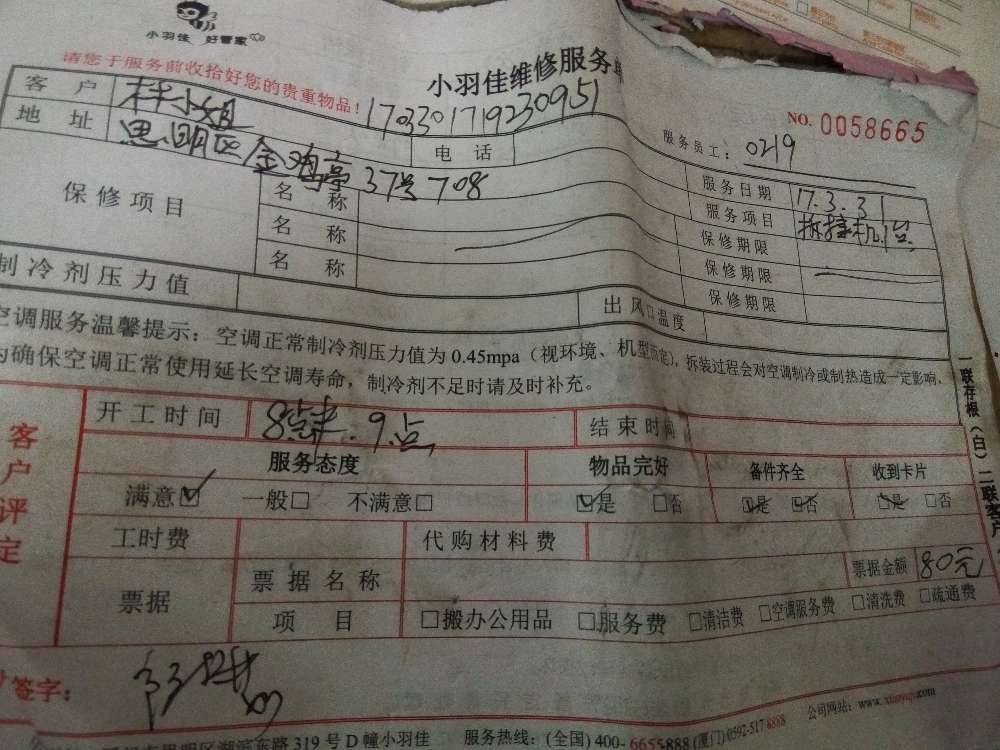 小羽佳 好管家
请您于服务前收拾好您的贵重物品!
小羽佳维修服务单
NO. 0058665
1703301719230951
服务员工: 0219
客户 林小姐
电话
服务日期 17.3.31
地址 思明区金鸡亭37号708
服务项目 拆挂机1台
保修项目
名称
保修期限
名称
保修期限
名称
保修期限
制冷剂压力值
出风口温度
空调服务温馨提示: 空调正常制冷剂压力值为 0.45mpa (视环境、机型而定), 拆装过程会对空调制冷或制热造成一定影响,
为确保空调正常使用延长空调寿命, 制冷剂不足时请及时补充。
一联存根(白) 二联客户
客户评定
开工时间 8点半.9点
结束时间
服务态度 物品完好 备件齐全 收到卡片
满意☑ 一般□ 不满意□ ☑是 □否 ☑是 □否 □是 □否
工时费
代购材料费
票据
票据名称
票据金额 80元
项目
□搬办公用品 □服务费 □清洁费 □空调服务费 □清洗费 □疏通费
签字:
319 号 D 幢小羽佳
服务热线: (全国) 400-6655888 (厦门) 0592-5178888
公司网站: www.xiaoyujia.com